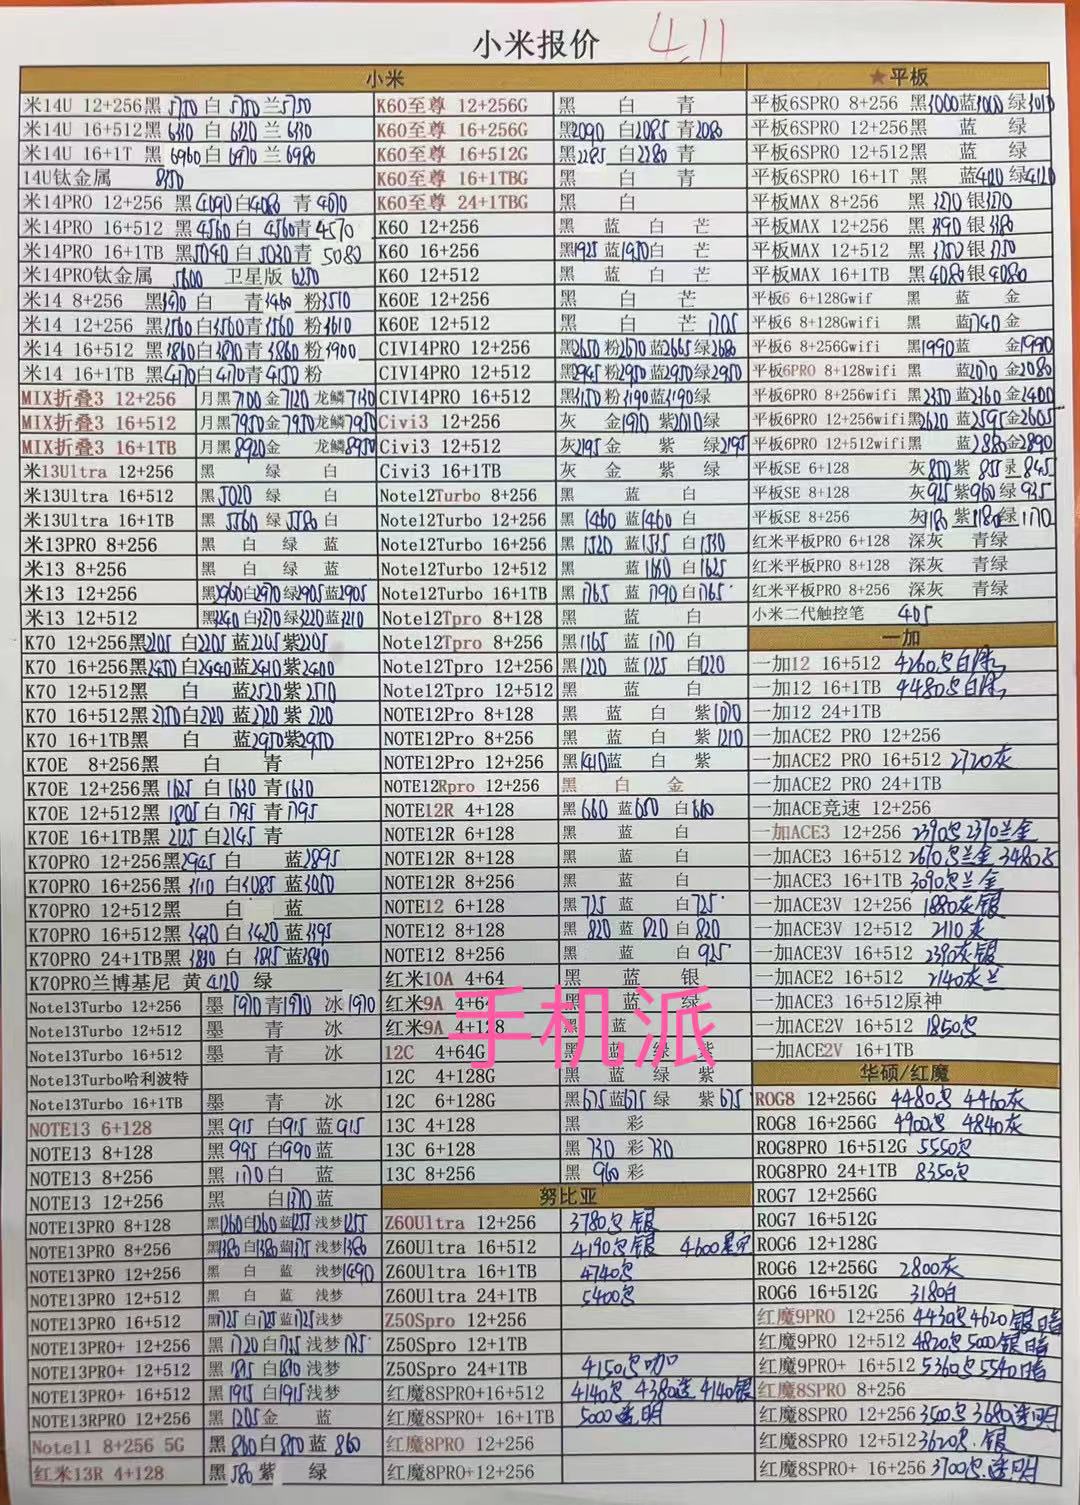 小米报价 4.11
小米
米14U 12+256黑 5750 白 5750 兰5750
米14U 16+512黑 6330 白 6320 兰 6330
米14U 16+1T 黑 6960 白 6970 兰 6980
14U钛金属 8150
米14PRO 12+256 黑4090白4080 青 4070
米14PRO 16+512 黑4560白 4560青4570
米14PRO 16+1TB 黑5040白 5030青 5080
米14PRO钛金属 5600 卫星版 6250
米14 8+256 黑 白 青3460 粉3510
米14 12+256 黑3560白3560青3560 粉3610
米14 16+512 黑3860白3870青 3860 粉3900
米14 16+1TB 黑4170白4170青4150 粉
MIX折叠3 12+256 月黑7100金7120龙鳞7130
MIX折叠3 16+512 月黑7950金7950龙鳞7950
MIX折叠3 16+1TB 月黑8920金 龙鳞8950
米13Ultra 12+256 黑 绿 白
米13Ultra 16+512 黑 绿 白
米13Ultra 16+1TB 黑 绿 白
米13PRO 8+256 黑 白 绿 蓝
米13 8+256 黑 白 绿 蓝
米13 12+256 黑2960白2970绿2905蓝2905
米13 12+512 黑3240白3270绿3220蓝3210
K70 12+256黑2205 白2205 蓝2205紫2205
K70 16+256黑2450白2440蓝2410紫2400
K70 12+512黑 白 蓝2520紫2510
K70 16+512黑 白2720 蓝2720紫 2720
K70 16+1TB黑 白 蓝2950紫2950
K70E 8+256黑 白 青
K70E 12+256黑 1625 白 1630 青1630
K70E 12+512黑 1805白 1795 青1795
K70E 16+1TB黑 2125 白2145 青
K70PRO 12+256黑2945 白 蓝2895
K70PRO 16+256黑 3110 白3085 蓝3050
K70PRO 12+512黑 白 蓝
K70PRO 16+512黑 3430 白 3420 蓝3395
K70PRO 24+1TB黑 白 蓝
K70PRO兰博基尼 黄 4120 绿
Note13Turbo 12+256 墨 1970青1970 冰1970
Note13Turbo 12+512 墨 青 冰
Note13Turbo 16+512 墨 青 冰
Note13Turbo哈利波特
Note13Turbo 16+1TB 墨 青 冰
NOTE13 6+128 黑915 白915 蓝915
NOTE13 8+128 黑 995 白990 蓝
NOTE13 8+256 黑 1170白 蓝
NOTE13 12+256 黑 白1370蓝
NOTE13PRO 8+128 黑1260白1260蓝1255浅梦1255
NOTE13PRO 8+256 黑1380白1380蓝1375浅梦1380
NOTE13PRO 12+256 黑 白 蓝 浅梦1490
NOTE13PRO 12+512 黑 白 蓝 浅梦
NOTE13PRO 16+512 黑1725白1725蓝1725浅梦
NOTE13PRO+ 12+256 黑 1720白1735浅梦
NOTE13PRO+ 12+512 黑 白 浅梦
NOTE13PRO+ 16+512 黑 1915白1915浅梦
NOTE13RPRO 12+256 黑 1205金 蓝
Note11 8+256 5G 黑860白850蓝 860
红米13R 4+128 黑 580紫 绿
K60至尊 12+256G 黑 白 青
K60至尊 16+256G 黑2090 白2085 青2080
K60至尊 16+512G 黑2285 白2280 青
K60至尊 16+1TBG 黑 白 青
K60至尊 24+1TBG 黑 白
K60 12+256 黑 蓝 白 芒
K60 16+256 黑1925蓝1950白 芒
K60 12+512 黑 蓝 白 芒
K60E 12+256 黑 白 芒
K60E 12+512 黑 白 芒1705
CIVI4PRO 12+256 黑2650粉2670蓝2665绿2680
CIVI4PRO 12+512 黑2945粉2950蓝2950绿2950
CIVI4PRO 16+512 黑3150粉3190蓝3190绿
Civi3 12+256 灰 金1970 紫2010绿
Civi3 12+512 灰2195金 紫 绿2195
Civi3 16+1TB 灰 金 紫 绿
Note12Turbo 8+256 黑 蓝 白
Note12Turbo 12+256 黑 1460 蓝1460 白
Note12Turbo 16+256 黑 1520 蓝1535 白1530
Note12Turbo 12+512 黑 蓝 白1625
Note12Turbo 16+1TB 黑1765 蓝1790白1765
Note12Tpro 8+128 黑 蓝 白
Note12Tpro 8+256 黑1165 蓝 1170 白
Note12Tpro 12+256 黑1220 蓝1225 白1220
Note12Tpro 12+512 黑 蓝 白
NOTE12Pro 8+128 黑 蓝 白 紫1070
NOTE12Pro 8+256 黑 蓝 白 紫1210
NOTE12Pro 12+256 黑1410蓝 白 紫
NOTE12Rpro 12+256 黑 白 金
NOTE12R 4+128 黑660 蓝650 白660
NOTE12R 6+128 黑 蓝 白
NOTE12R 8+128 黑 蓝 白
NOTE12R 8+256 黑 蓝 白
NOTE12 6+128 黑725 蓝 白725
NOTE12 8+128 黑 820 蓝 820 白820
NOTE12 8+256 黑 蓝 白 925
红米10A 4+64 黑 蓝 银
红米9A 4+64 黑 蓝 绿
红米9A 4+128 黑 蓝
手机派
12C 4+64G 黑 蓝 绿 紫
12C 4+128G 黑 蓝 绿 紫
12C 6+128G 黑675蓝675 绿 紫675
13C 4+128 黑 彩
13C 6+128 黑 730 彩730
13C 8+256 黑 960 彩
努比亚
Z60Ultra 12+256 3780黑 银
Z60Ultra 16+512 4190黑银 4600星空
Z60Ultra 16+1TB 4740黑
Z60Ultra 24+1TB 5400黑
Z50Spro 12+256
Z50Spro 12+1TB
Z50Spro 24+1TB 4150黑咖
红魔8SPRO+16+512 4140黑 4380透 4140银
红魔8SPRO+ 16+1TB 5000透明
红魔8PRO 12+256
红魔8PRO+12+256
★平板
平板6SPRO 8+256 黑3000蓝3000绿3010
平板6SPRO 12+256黑 蓝 绿
平板6SPRO 12+512黑 蓝 绿
平板6SPRO 16+1T 黑 蓝4120绿4120
平板MAX 8+256 黑 3270银3270
平板MAX 12+256 黑 3390银3380
平板MAX 12+512 黑 3750银3750
平板MAX 16+1TB 黑 4080银4080
平板6 6+128Gwif 黑 蓝 金
平板6 8+128Gwifi 黑 蓝1740金
平板6 8+256Gwifi 黑1990蓝 金1990
平板6PRO 8+128wifi 黑 蓝2070 金2080
平板6PRO 8+256wifi 黑2350蓝2360金2400
平板6PRO 12+256wifi黑2620蓝2595金2605
平板6PRO 12+512wifi黑 蓝2880金2890
平板SE 6+128 灰850紫855绿845
平板SE 8+128 灰925紫960绿935
平板SE 8+256 灰1180紫1180绿1170
红米平板PRO 6+128 深灰 青绿
红米平板PRO 8+128 深灰 青绿
红米平板PRO 8+256 深灰 青绿
小米二代触控笔 405
一加
一加12 16+512 4260黑白
一加12 16+1TB 4480黑白
一加12 24+1TB
一加ACE2 PRO 12+256
一加ACE2 PRO 16+512 2720灰
一加ACE2 PRO 24+1TB
一加ACE竞速 12+256
一加ACE3 12+256 2390黑 2370兰金
一加ACE3 16+512 2670黑兰金 3480
一加ACE3 16+1TB 3090黑兰金
一加ACE3V 12+256 1880灰银
一加ACE3V 12+512 2110灰
一加ACE3V 16+512 2390灰银
一加ACE2 16+512 2140灰兰
一加ACE3 16+512原神
一加ACE2V 16+512 1850黑
一加ACE2V 16+1TB
华硕/红魔
ROG8 12+256G 4480黑 4460灰
ROG8 16+256G 4900黑 4840灰
ROG8PRO 16+512G 5550黑
ROG8PRO 24+1TB 8350黑
ROG7 12+256G
ROG7 16+512G
ROG6 12+128G
ROG6 12+256G 2800灰
ROG6 16+512G 3180白
红魔9PRO 12+256 4430黑4620银暗
红魔9PRO 12+512 4820黑5000银暗
红魔9PRO+ 16+512 5360黑5540暗
红魔8SPRO 8+256
红魔8SPRO 12+256 3500黑3680透明
红魔8SPRO 12+512 3620黑.银
红魔8SPRO+ 16+256 3700黑.透明